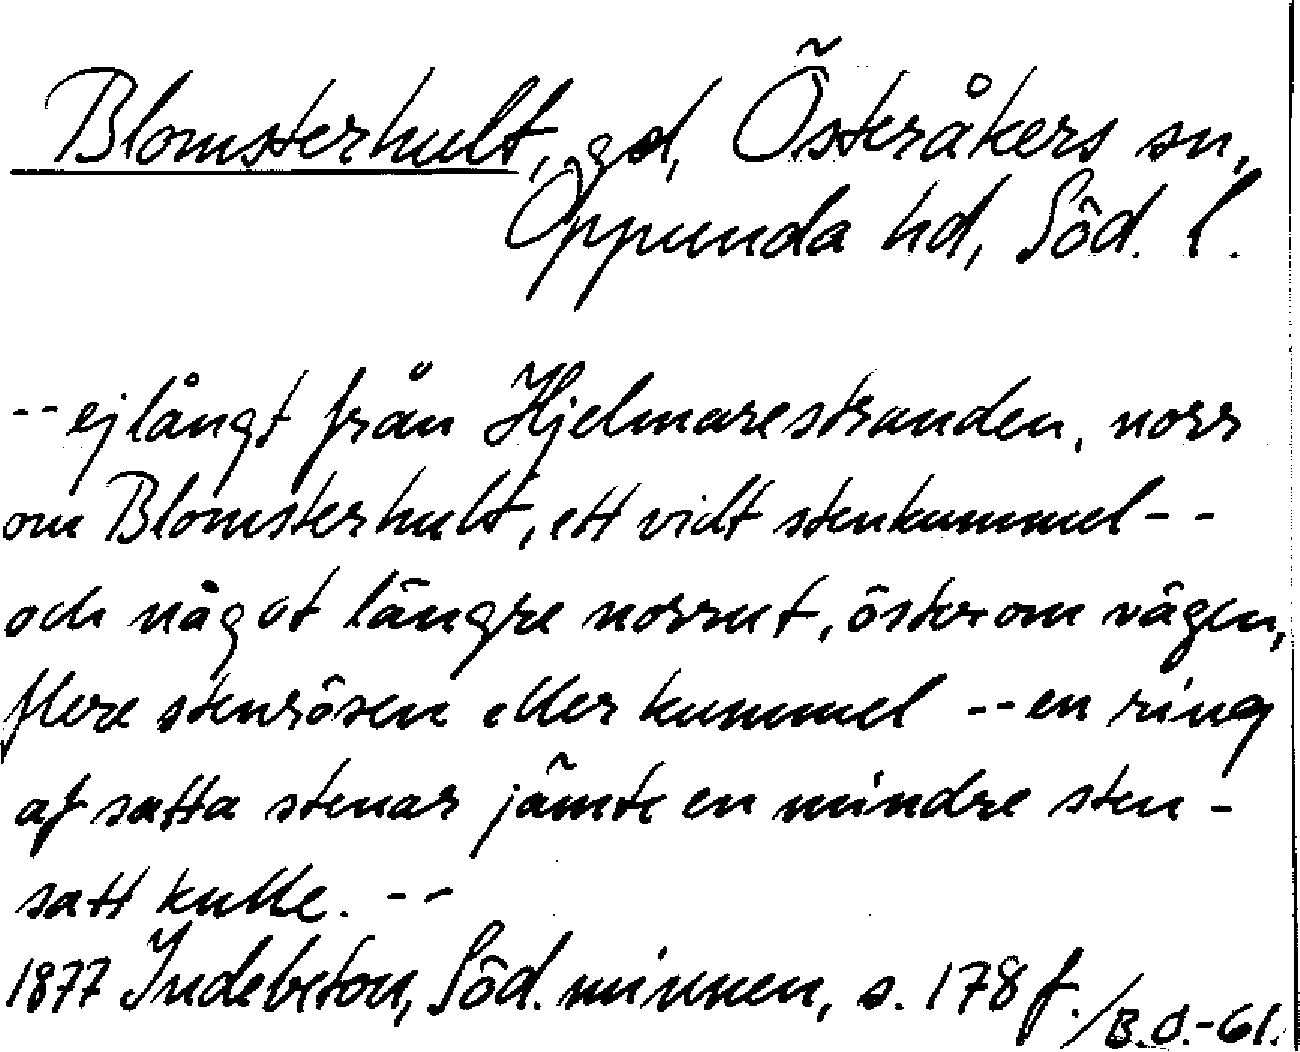 Blomsterhult, gd, Österåkers sn,
Oppunda hd, Söd. l.
-- ej långt från Hjelmarestranden, norr
om Blomsterhult, ett vidt stenkummel --
och något längre norrut, öster om vägen,
flere stenrösen eller kummel -- en ring
af satta stenar jämte en mindre sten-
satt kulle. --
1877 Indebetou, Söd. minnen, s. 178 f. /B.O.-61.